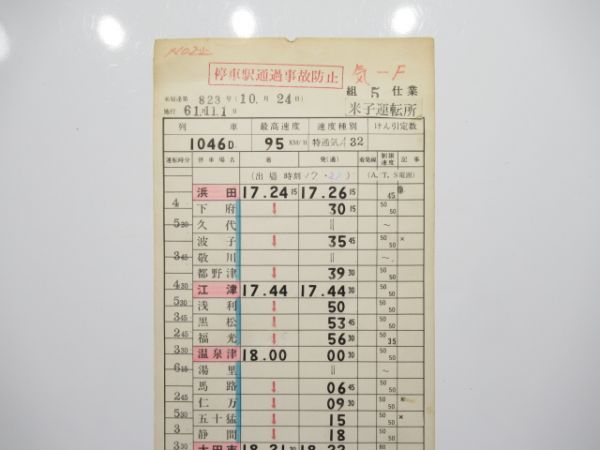 停車駅通過事故防止
気－F
組 5 仕業
米運達第 823号(10.月24日)
施行 61.11.1
米子運転所
列車 最高速度 速度種別 けん引定数
1046D. 95 KM/H 特通気A32
運転時分 停車場名 着 発(通) 着発線 制限速度 記事
(出場時刻17. ) (A.T.S電源)
浜田 17.24 15 17.26 15 45
4
下府 ↓ 30 15 50 50
5 30
久代 〃 ～
波子 ↓ 35 45 50 50 ×
3 45
敬川 〃 ～
都野津 ↓ 39 30 50 50
4 30
江津 17.44 17.44 30 50 50
5 30
浅利 ↓ 50 50 50
3 45
黒松 ↓ 53 45 50 50
2 45
福光 ↓ 56 30 50 35
3 30
温泉津 18.00 00 30 50 50
6 15
湯里 〃 ～
馬路 ↓ 06 45 50 50
2 45
仁万 ↓ 09 30 50 50
5 30
五十猛 ↓ 15 50 50 ×
3
静間 ↓ 18 50 50
3 30
大田市 18.21 30 18.22